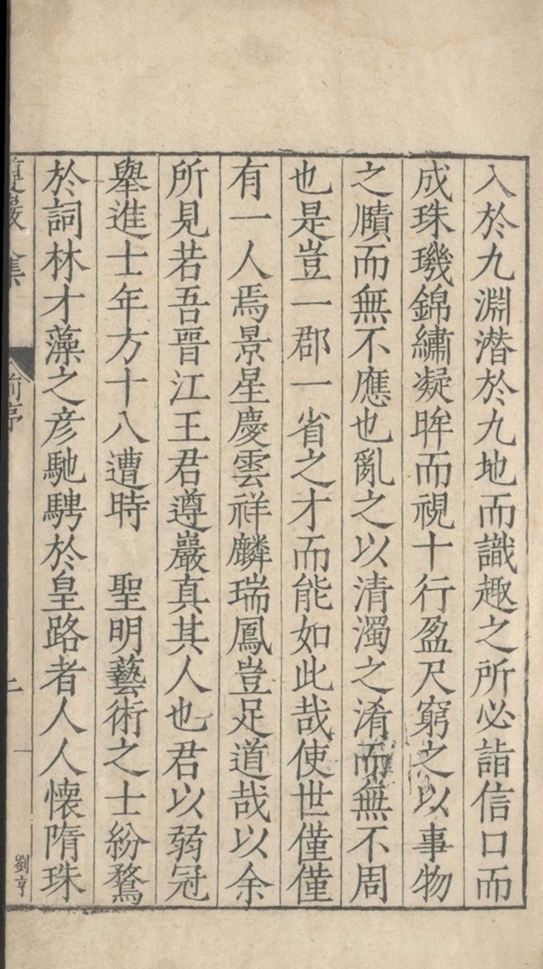 入於九淵潜於九地而識趣之所必詣信口而
成珠璣錦繡凝眸而視十行盈尺窮之以事物
之賾而無不應也亂之以清濁之淆而無不周
也是豈一郡一省之才而能如此哉使世僅僅
有一人焉景星慶雲祥麟瑞鳳豈足道哉以余
所見若吾晉江王君遵巖真其人也君以弱冠
舉進士年方十八遭時　聖明藝術之士紛騖
於詞林才藻之彦馳騁於皇路者人人懐隋珠
遵巖集
前序
二
劉亨